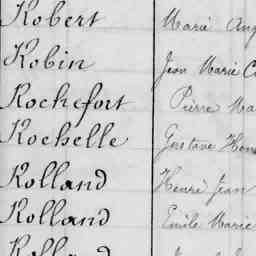 Robert Marie Ang
Robin Jean Marie
Rochefort Pierre Ma
Rochelle Gustave Hen
Rolland Henri Jean
Rolland Emile Marie
Rolland